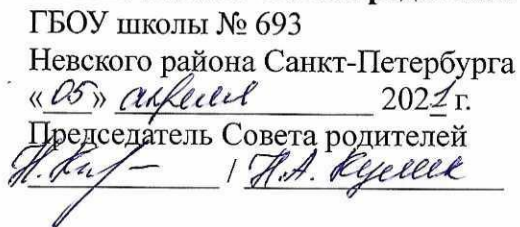 ГБОУ школы № 693
Невского района Санкт-Петербурга
«05» апреля 2021 г.
Председатель Совета родителей
/ Н.А.